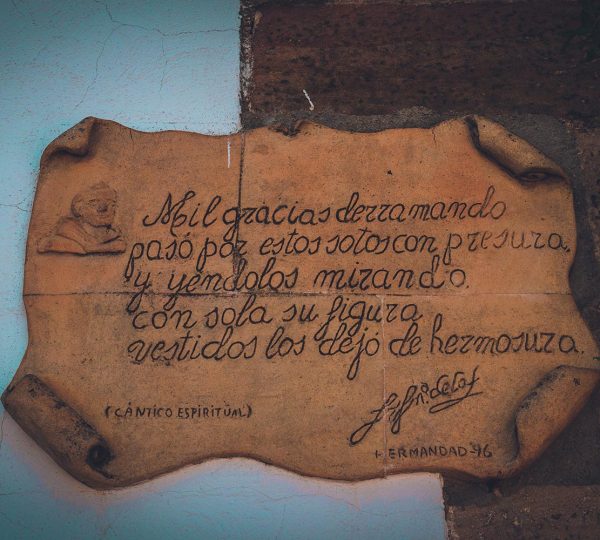 Mil gracias derramando
pasó por estos sotos con presura,
y yéndolos mirando.
con sola su figura
vestidos los dejó de hermosura.
(CÁNTICO ESPIRITUAL)
HERMANDAD-96